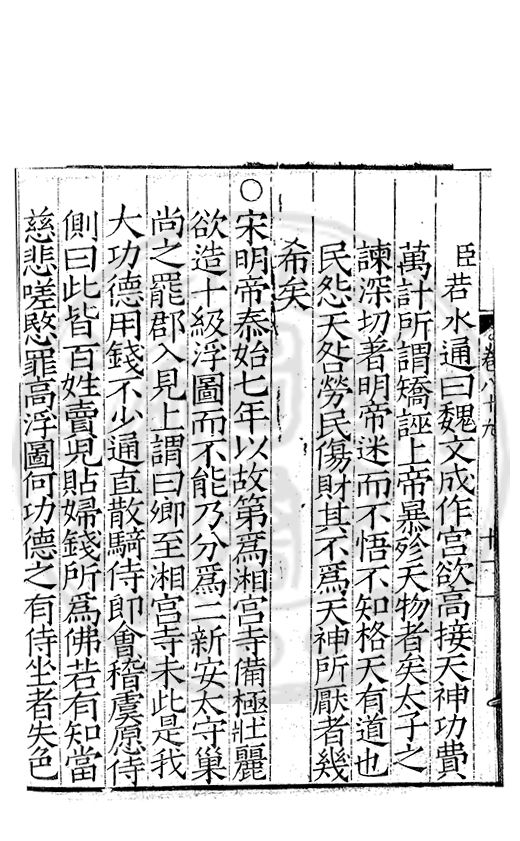 卷八十九
臣若水通曰魏文成作宮欲高接天神功費
萬計所謂矯誣上帝暴殄天物者矣太子之
諫深切著明帝迷而不悟不知格天有道也
民怨天咎勞民傷財其不爲天神所厭者幾
希矣
○宋明帝泰始七年以故第爲湘宮寺備極壯麗
欲造十級浮圖而不能乃分爲二新安太守巢
尚之罷郡入見上謂曰卿至湘宮寺未此是我
大功德用錢不少通直散騎侍郎會稽虞愿侍
側曰此皆百姓賣兒貼婦錢所爲佛若有知當
慈悲嗟愍罪高浮圖何功德之有侍坐者失色